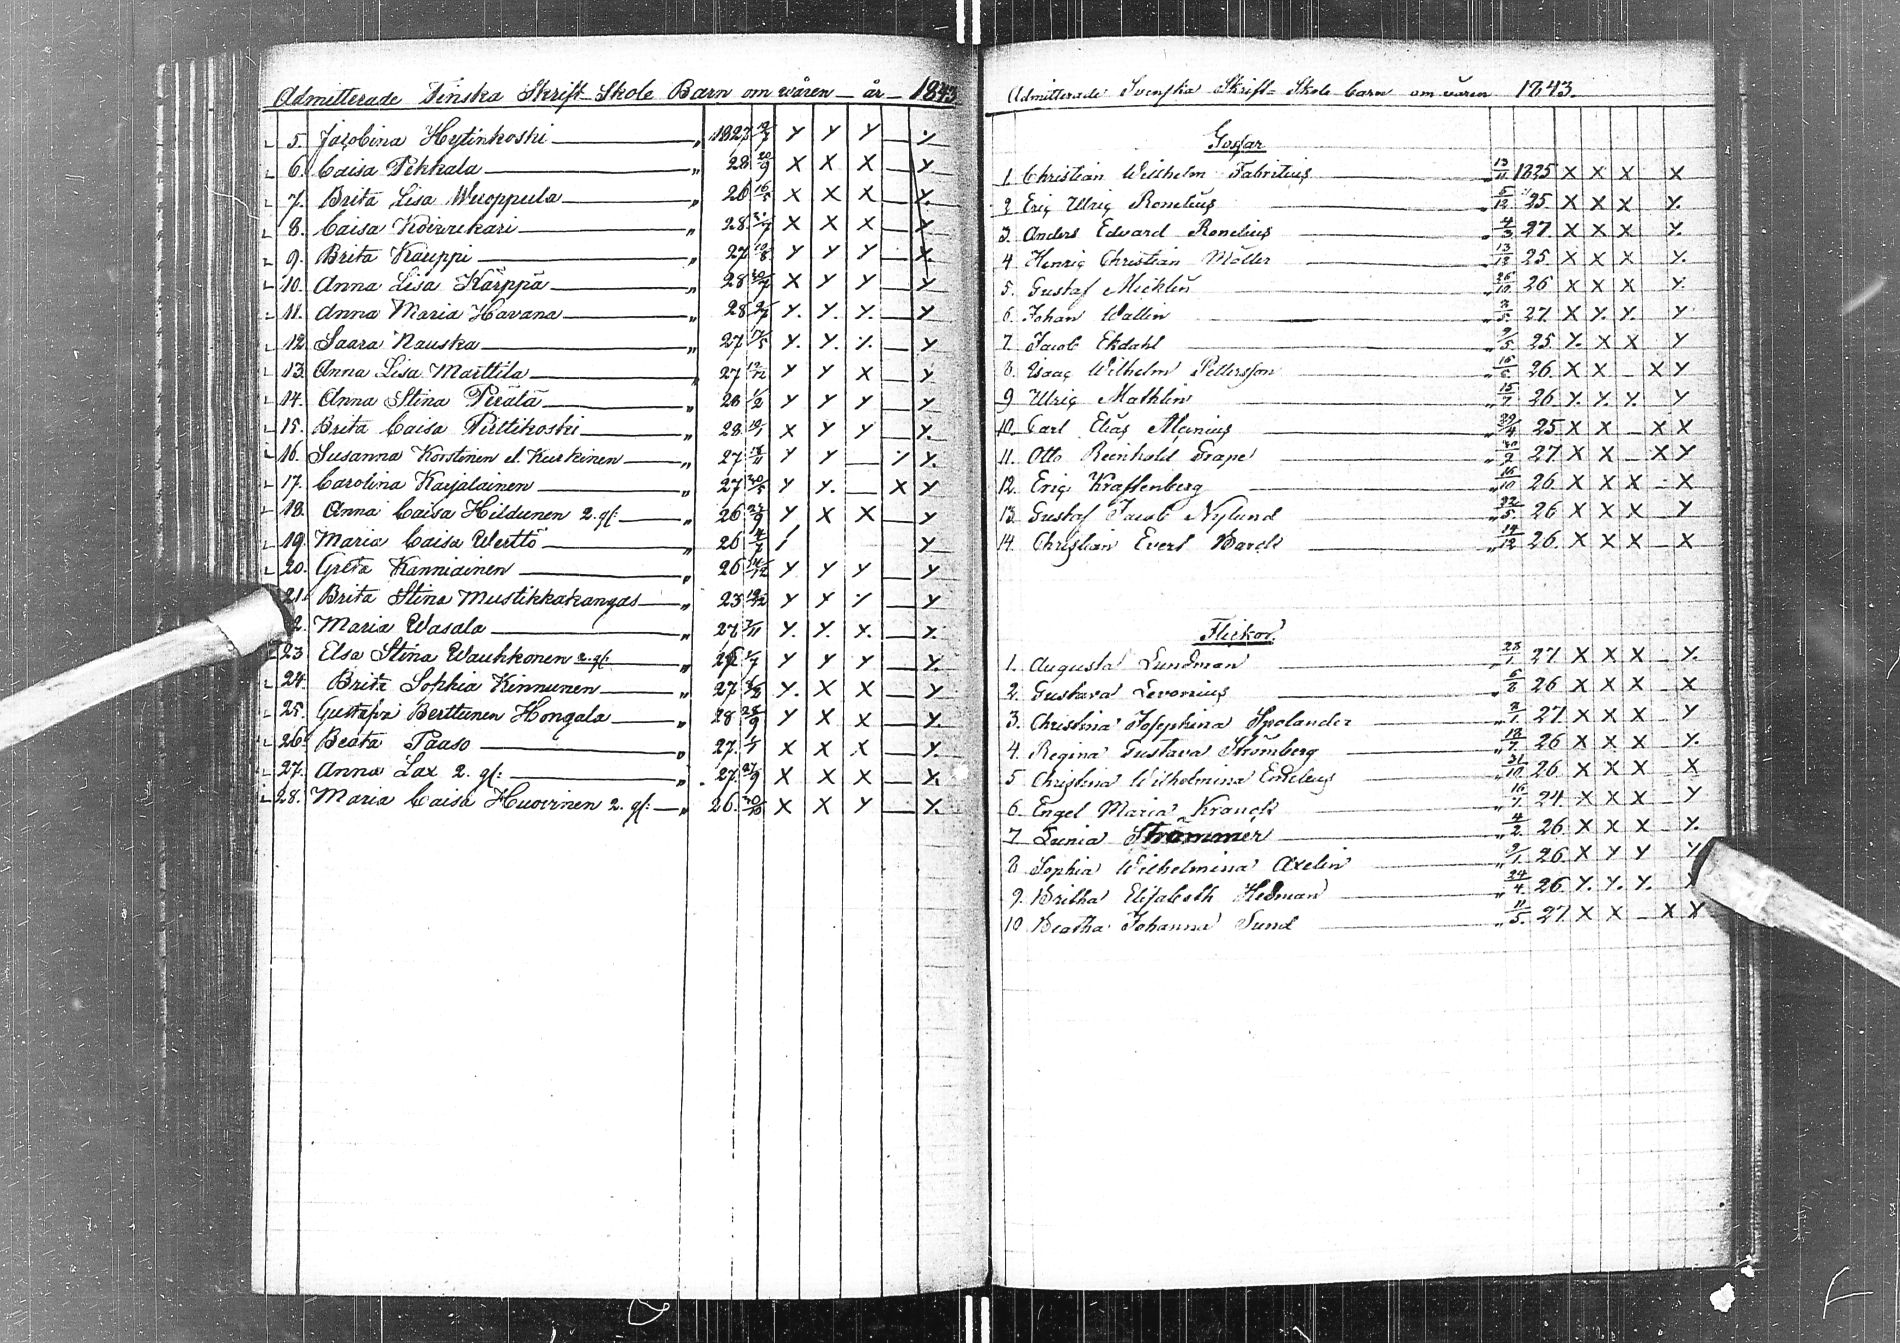 Admitterade Finska Skrift Skole Barn om våren år 1843
5. Jacobina Hytinkoski " 1827 Y Y Y — Y
6. Caisa Pikkala " 28 20/9 X X X — Y
7. Brita Lisa Wuoppula " 26 16/5 X X X — Y.
8. Caisa Koivukari " 28 X X X — Y
9. Brita Kauppi " 27 10/8 Y Y Y — X.
10. Anna Lisa Kärppä " 28 X Y Y — Y
11. Anna Maria Havana " 28 Y. Y. Y. — Y
12. Saara Nauska " 27 Y. Y. Y. — Y
13. Anna Lisa Marttila " 27 Y Y X — Y
14. Anna Stina Perätä " 26 1/2 Y Y Y — Y
15. Brita Caisa Pulttikoski " 28 X Y Y — Y.
16. Susanna Korstinen el. Keskinen " 27 Y Y — Y Y.
17. Carolina Karjalainen " 27 30/5 Y Y. — X Y
18. Anna Caisa Hildunen 2. gf: " 26 Y X X — Y
19. Maria Caisa Werttö " 26 / Y
20. Greta Kanniainen " 26 Y Y Y — Y
21. Brita Stina Mustikkakangas " 23 Y Y Y — Y
2. Maria Wasala " 27 Y. Y. Y. — Y.
23 Elsa Stina Wauhkonen 2. gf: " Y Y Y — Y.
24. Brita Sophia Kinnunen " 27 Y. X X — Y
25. Gustafva Berttunen Hongala " 28 28/9 Y X X — Y.
26. Beata Paaso " 27. X X X — Y.
27. Anna Lax 2. gf: " 27 27/9 X X X — X.
28. Maria Caisa Huovinen 2. gf: " 26. 30/10 X X Y — X.
Admitterade Svenska Skrift Skole barn om våren 1843.
Gossar
1 Christian Willhelm Fabritius " 13/11 1825 X X X X
2 Eric Ulric Ronelius " 5/12 25 X X X Y.
3. Anders Edvard Ronelius " 4/3 27 X X X Y.
4 Henric Christian Möller " 13/12 25 X X X Y.
5. Gustaf Michlin " 26/10 26 X X X Y.
6. Johan Wallin " 27. X Y. Y. Y
7. Jacob Ekdahl " 9/5 25. Y. X X Y
8. Isaac Wilhelm Pettersson " 26 X X — X Y
9 Ulric Mathlin " 15/7 26 Y. Y. Y. Y
10. Carl Elias Alcenius " 29/4 25 X X — X X
11. Otto Reinhold Grape " 27 X X — X Y
12. Eric Kraftenberg " 16/10 26 X X X — X
13. Gustaf Jacob Nylund " 22/5. 26 X X X — Y
14. Christian Evert Barck " 14/12 26. X X X — X
Flickor.
1. Augusta Lundman " 28/1. 27 X X X — Y.
2. Gustava Levonius " 6/8 26 X X X — X
3. Christina Josephina Spolander " 2/1. 27. X X X — Y
4. Regina Gustava Strömberg " 18/7. 26 X X X — Y.
5 Christina Wilhelmina Emeleus " 31/10 26 X X X — X
6. Engel Maria Kranck " 16/7. 24. X X X — Y
7 Lunia Strömmer " 4/2. 26 X X X — Y.
8 Sophia Wilhelmina Axelin " 9/1. 26. X Y Y Y
9. Britha Elisabeth Hedman " 24/4. 26. Y. Y. Y.
10. Beatha Johanna Sund " 11/5. 27. X X — X X